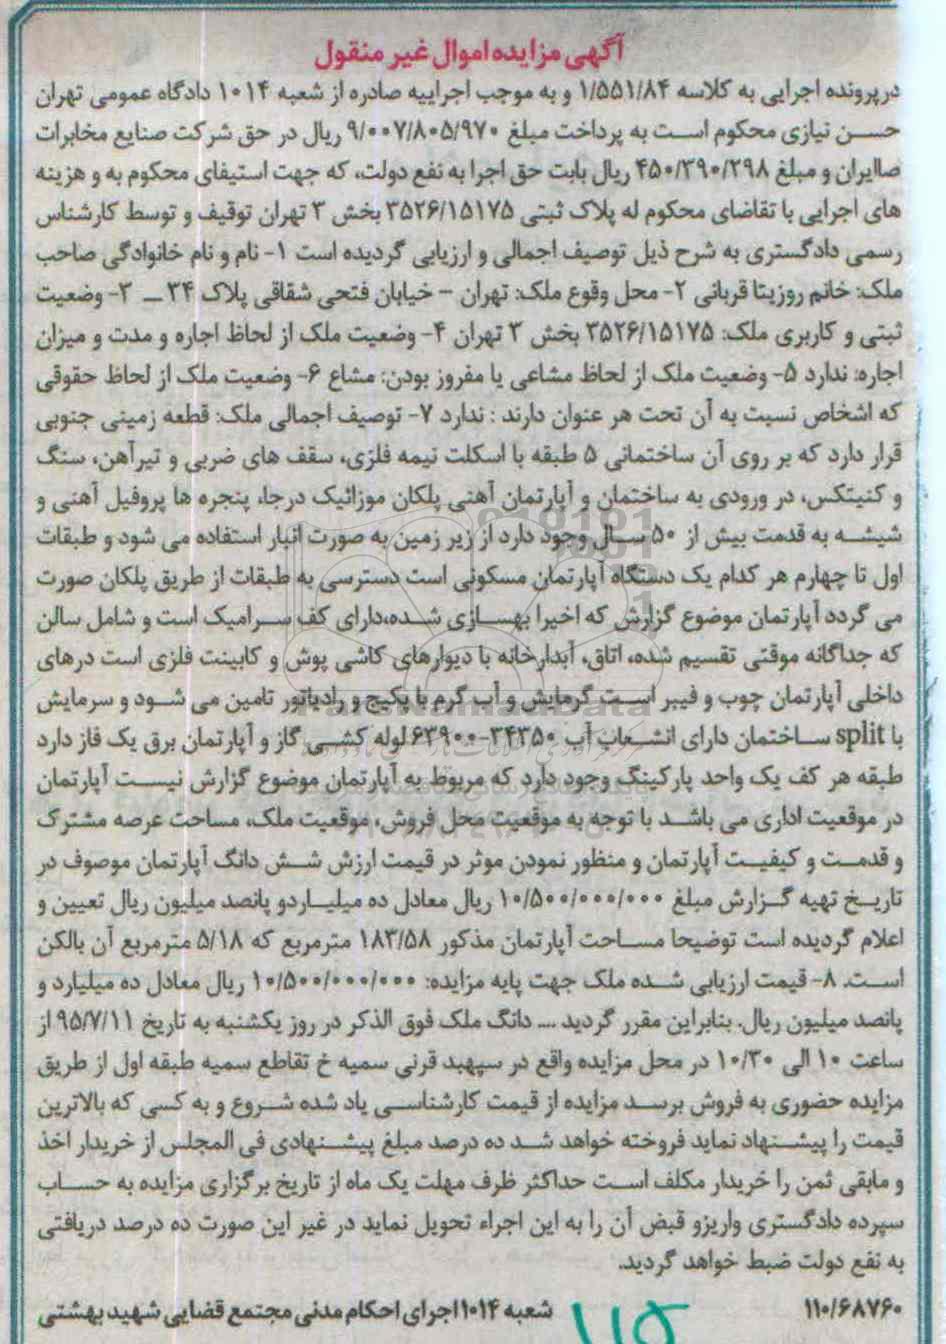 آگهی مزایده اموال غیر منقول
در پرونده اجرایی به کلاسه ۱/۵۵۱/۸۴ و به موجب اجراییه صادره از شعبه ۱۰۱۴ دادگاه عمومی تهران
حسن نیازی محکوم است به پرداخت مبلغ ۹/۰۰۷/۸۰۵/۹۷۰ ریال در حق شرکت صنایع مخابرات
صاایران و مبلغ ۴۵۰/۳۹۰/۲۹۸ ریال بابت حق اجرا به نفع دولت، که جهت استیفای محکوم به و هزینه
های اجرایی با تقاضای محکوم له پلاک ثبتی ۳۵۲۶/۱۵۱۷۵ بخش ۳ تهران توقیف و توسط کارشناس
رسمی دادگستری به شرح ذیل توصیف اجمالی و ارزیابی گردیده است ۱- نام و نام خانوادگی صاحب
ملک: خانم روزیتا قربانی ۲- محل وقوع ملک: تهران – خیابان فتحی شقاقی پلاک ۳۴ _ ۳- وضعیت
ثبتی و کاربری ملک: ۳۵۲۶/۱۵۱۷۵ بخش ۳ تهران ۴- وضعیت ملک از لحاظ اجاره و مدت و میزان
اجاره: ندارد ۵- وضعیت ملک از لحاظ مشاعی یا مفروز بودن: مشاع ۶- وضعیت ملک از لحاظ حقوقی
که اشخاص نسبت به آن تحت هر عنوان دارند : ندارد ۷- توصیف اجمالی ملک: قطعه زمینی جنوبی
قرار دارد که بر روی آن ساختمانی ۵ طبقه با اسکلت نیمه فلزی، سقف های ضربی و تیرآهن، سنگ
و کنیتکس، در ورودی به ساختمان و آپارتمان آهنی پلکان موزائیک درجا، پنجره ها پروفیل آهنی و
شیشه به قدمت بیش از ۵۰ سال وجود دارد از زیر زمین به صورت انبار استفاده می شود و طبقات
اول تا چهارم هر کدام یک دستگاه آپارتمان مسکونی است دسترسی به طبقات از طریق پلکان صورت
می گردد آپارتمان موضوع گزارش که اخیرا بهسازی شده،دارای کف سرامیک است و شامل سالن
که جداگانه موقتی تقسیم شده، اتاق، آبدارخانه با دیوارهای کاشی پوش و کابینت فلزی است درهای
داخلی آپارتمان چوب و فیبر است گرمایش و آب گرم با پکیج و رادیاتور تامین می شود و سرمایش
با split ساختمان دارای انشعاب آب ۳۴۳۵۰-۶۳۹۰۰ لوله کشی گاز و آپارتمان برق یک فاز دارد
طبقه هر کف یک واحد پارکینگ وجود دارد که مربوط به آپارتمان موضوع گزارش نیست آپارتمان
در موقعیت اداری می باشد با توجه به موقعیت محل فروش، موقعیت ملک، مساحت عرصه مشترک
و قدمت و کیفیت آپارتمان و منظور نمودن موثر در قیمت ارزش شش دانگ آپارتمان موصوف در
تاریخ تهیه گزارش مبلغ ۱۰/۵۰۰/۰۰۰/۰۰۰ ریال معادل ده میلیاردو پانصد میلیون ریال تعیین و
اعلام گردیده است توضیحا مساحت آپارتمان مذکور ۱۸۳/۵۸ مترمربع که ۵/۱۸ مترمربع آن بالکن
است. ۸- قیمت ارزیابی شده ملک جهت پایه مزایده: ۱۰/۵۰۰/۰۰۰/۰۰۰ ریال معادل ده میلیارد و
پانصد میلیون ریال. بنابراین مقرر گردید .... دانگ ملک فوق الذکر در روز یکشنبه به تاریخ ۹۵/۷/۱۱ از
ساعت ۱۰ الی ۱۰/۳۰ در محل مزایده واقع در سپهبد قرنی سمیه خ تقاطع سمیه طبقه اول از طریق
مزایده حضوری به فروش برسد مزایده از قیمت کارشناسی یاد شده شروع و به کسی که بالاترین
قیمت را پیشنهاد نماید فروخته خواهد شد ده درصد مبلغ پیشنهادی فی المجلس از خریدار اخذ
و مابقی ثمن را خریدار مکلف است حداکثر ظرف مهلت یک ماه از تاریخ برگزاری مزایده به حساب
سپرده دادگستری واریزو قبض آن را به این اجراء تحویل نماید در غیر این صورت ده درصد دریافتی
به نفع دولت ضبط خواهد گردید.
۱۱۰/۶۸۷۶۰ شعبه ۱۰۱۴ اجرای احکام مدنی مجتمع قضایی شهید بهشتی